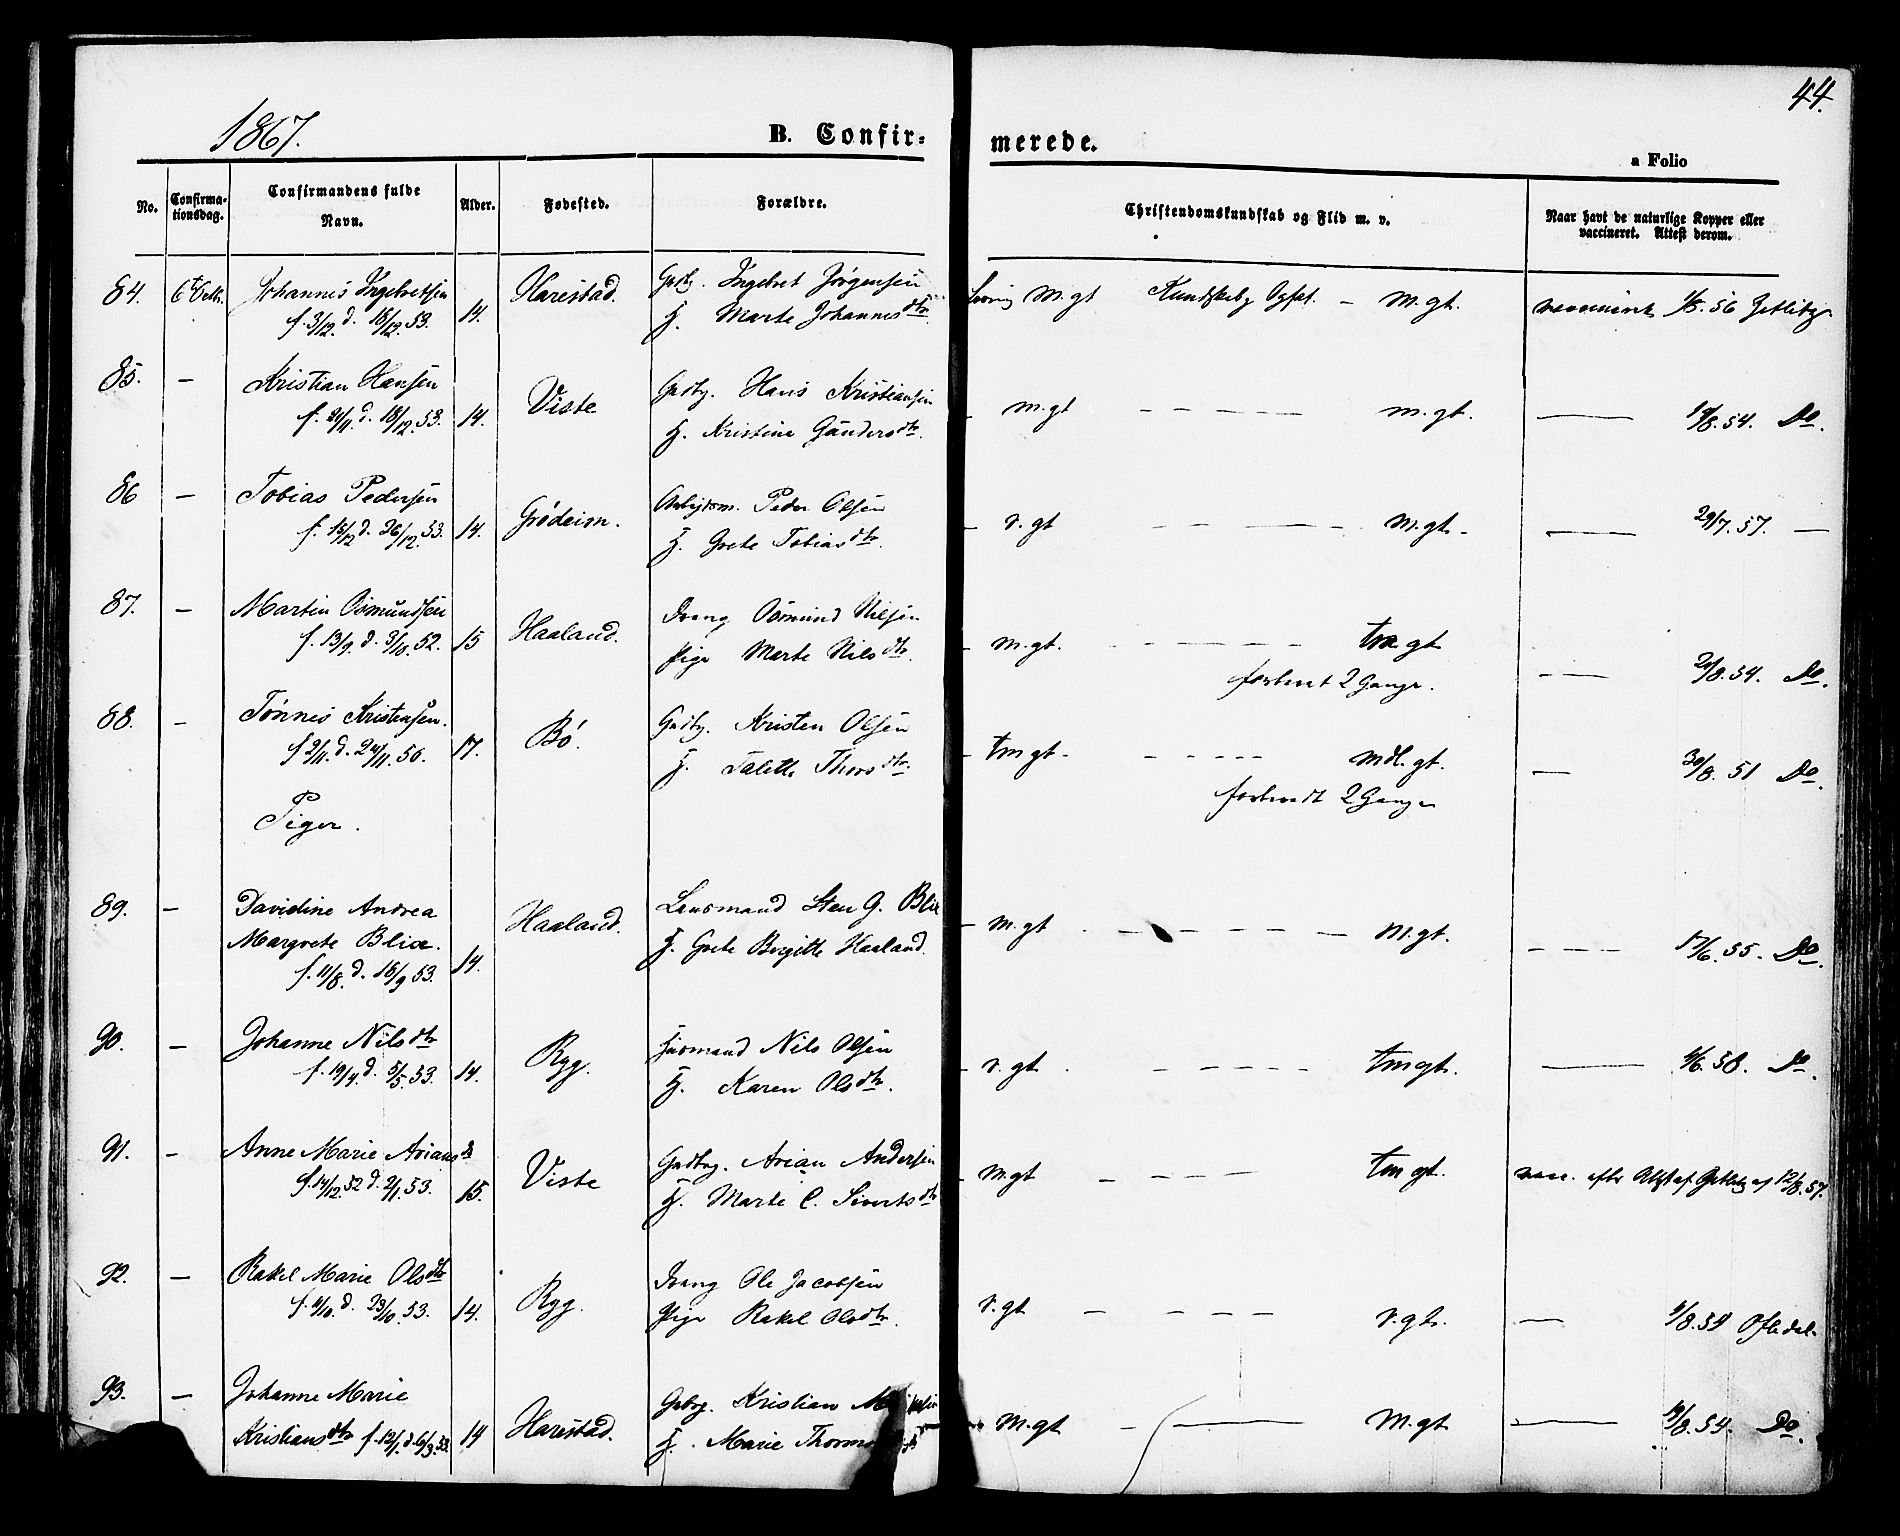 1867.
B. Confir=
merede.
44.
a Folio
No.
Confirma-
tionsdag.
Confirmandens fulde
Navn.
Alder.
Fødested.
Forældre.
Christendomskundskab og Flid m. v.
Naar havt de naturlige Kopper eller
vaccineret. Attest derom.
84. Johannes Ingebretsen 14. Harestad. Grdbg. Ingebret Jørgensen M.gt Kundskab og Opf. – M.gt. vaccineret 56 Zetlitz
f. 3/12. d. 18/12. 53. H. Marte Johannesdtr.
85. – Kristian Hansen 14. Viste Grdbg. Hans Kristiansen – m.gt – – – – – m.gt. — /8. 54. Do.
f. d. 18/12. 53. H. Kristine Gundersdtr.
86 – Tobias Pedersen 14. Grødeim. Arbejdsm. Peder Olsen – v. gt – – – – – – m.gt. — 29/7. 57. —
f. 15/12 d. 26/12. 53. H. Grete Tobiasdtr.
87. – Martin Osmundsen 15 Haaland. Dreng Osmund Nilsen – m.gt. – – – – – tm gt
f. 13/9. d. 3/10. 52. Pige Marte Nilsdtr. – — /8. 54. Do.
forhørt 2 Gange.
88. – Tønnes Kristensen. 17. Bø. Grdbg. Kristen Olsen – tm gt – – – – – mdl. gt. — 30/8. 51 Do.
f. 2/11. d. 24/11. 50. H. Talette Thorsdtr.
forhørt 2 Gange
Piger.
89. – Davidine Andrea Haaland. Lensmand Sten G. Blix – m.gt – – – – – – M.gt.
Margrete Blix. 14. H. Grete Birgitte Haaland. – – – – 17/6. 55. Do.
f. 11/8. d. 18/9 53.
90. – Johanne Nilsdtr 14. Ryg. Husmand Nils Olsen – v. gt – – – – – tm gt. — /6. 58. Do.
f. 19/4. d. 5/5. 53. H. Karen Olsdtr.
91. – Anne Marie Ariansdtr 15. Viste Grdbg. Arian Andersen – M.gt – – – – – tm gt. vacc. efter Attest af Zetlitz af 12/8. 57.
f. 14/12. 52 d. 2/1. 53. H. Marte C. Sivertsdtr
92. – Rakel Marie Olsdtr 14. Ryg. Dreng Ole Jacobsen v. gt – – – – v. gt. — /8. 54 Oftedal.
f. /10. d. 23/10. 53. Pige Rakel Olsdtr.
93. – Johanne Marie 14 Harestad. Grdbg. Kristian
Kristiansdtr f. 12/1. d. 6/3. 53. H. Marie – M.gt – — M.gt. — /8. 54. Do.